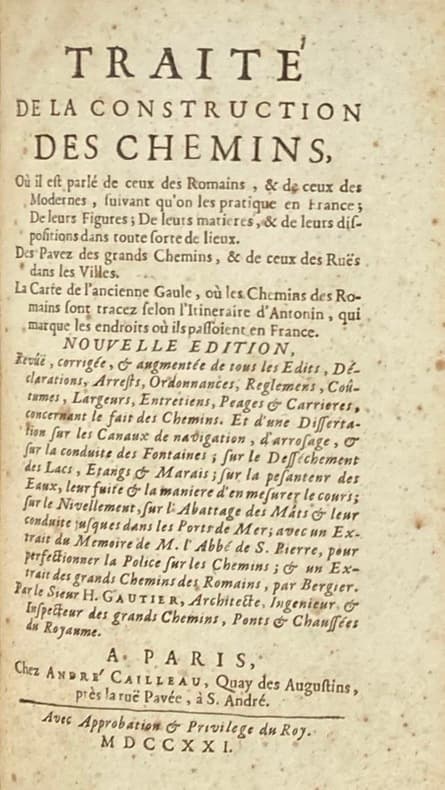 TRAITÉ
DE LA CONSTRUCTION
DES CHEMINS,
Où il est parlé de ceux des Romains, & de ceux des
Modernes, suivant qu'on les pratique en France;
De leurs Figures; De leurs matieres, & de leurs dis-
positions dans toute sorte de lieux.
Des Pavez des grands Chemins, & de ceux des Ruës
dans les Villes.
La Carte de l'ancienne Gaule, où les Chemins des Ro-
mains sont tracez selon l'Itineraire d'Antonin, qui
marque les endroits où ils passoient en France.
NOUVELLE EDITION,
Revûë, corrigée, & augmentée de tous les Edits, Dé-
clarations, Arrests, Ordonnances, Reglemens, Coû-
tumes, Largeurs, Entretiens, Peages & Carrieres,
concernant le fait des Chemins. Et d'une Disserta-
tion sur les Canaux de navigation, d'arrosage, &
sur la conduite des Fontaines; sur le Desséchement
des Lacs, Etangs & Marais; sur la pesanteur des
Eaux, leur fuite & la maniere d'en mesurer le cours;
sur le Nivellement, sur l'Abattage des Mâts & leur
conduite jusques dans les Ports de Mer; avec un Ex-
trait du Memoire de M. l'Abbé de S. Pierre, pour
perfectionner la Police sur les Chemins; & un Ex-
trait des grands Chemins des Romains, par Bergier.
Par le Sieur H. GAUTIER, Architecte, Ingenieur, &
Inspecteur des grands Chemins, Ponts & Chaussées
du Royaume.
A PARIS,
Chez ANDRÉ CAILLEAU, Quay des Augustins,
près la ruë Pavée, à S. André.
Avec Approbation & Privilege du Roy.
MDCCXXI.